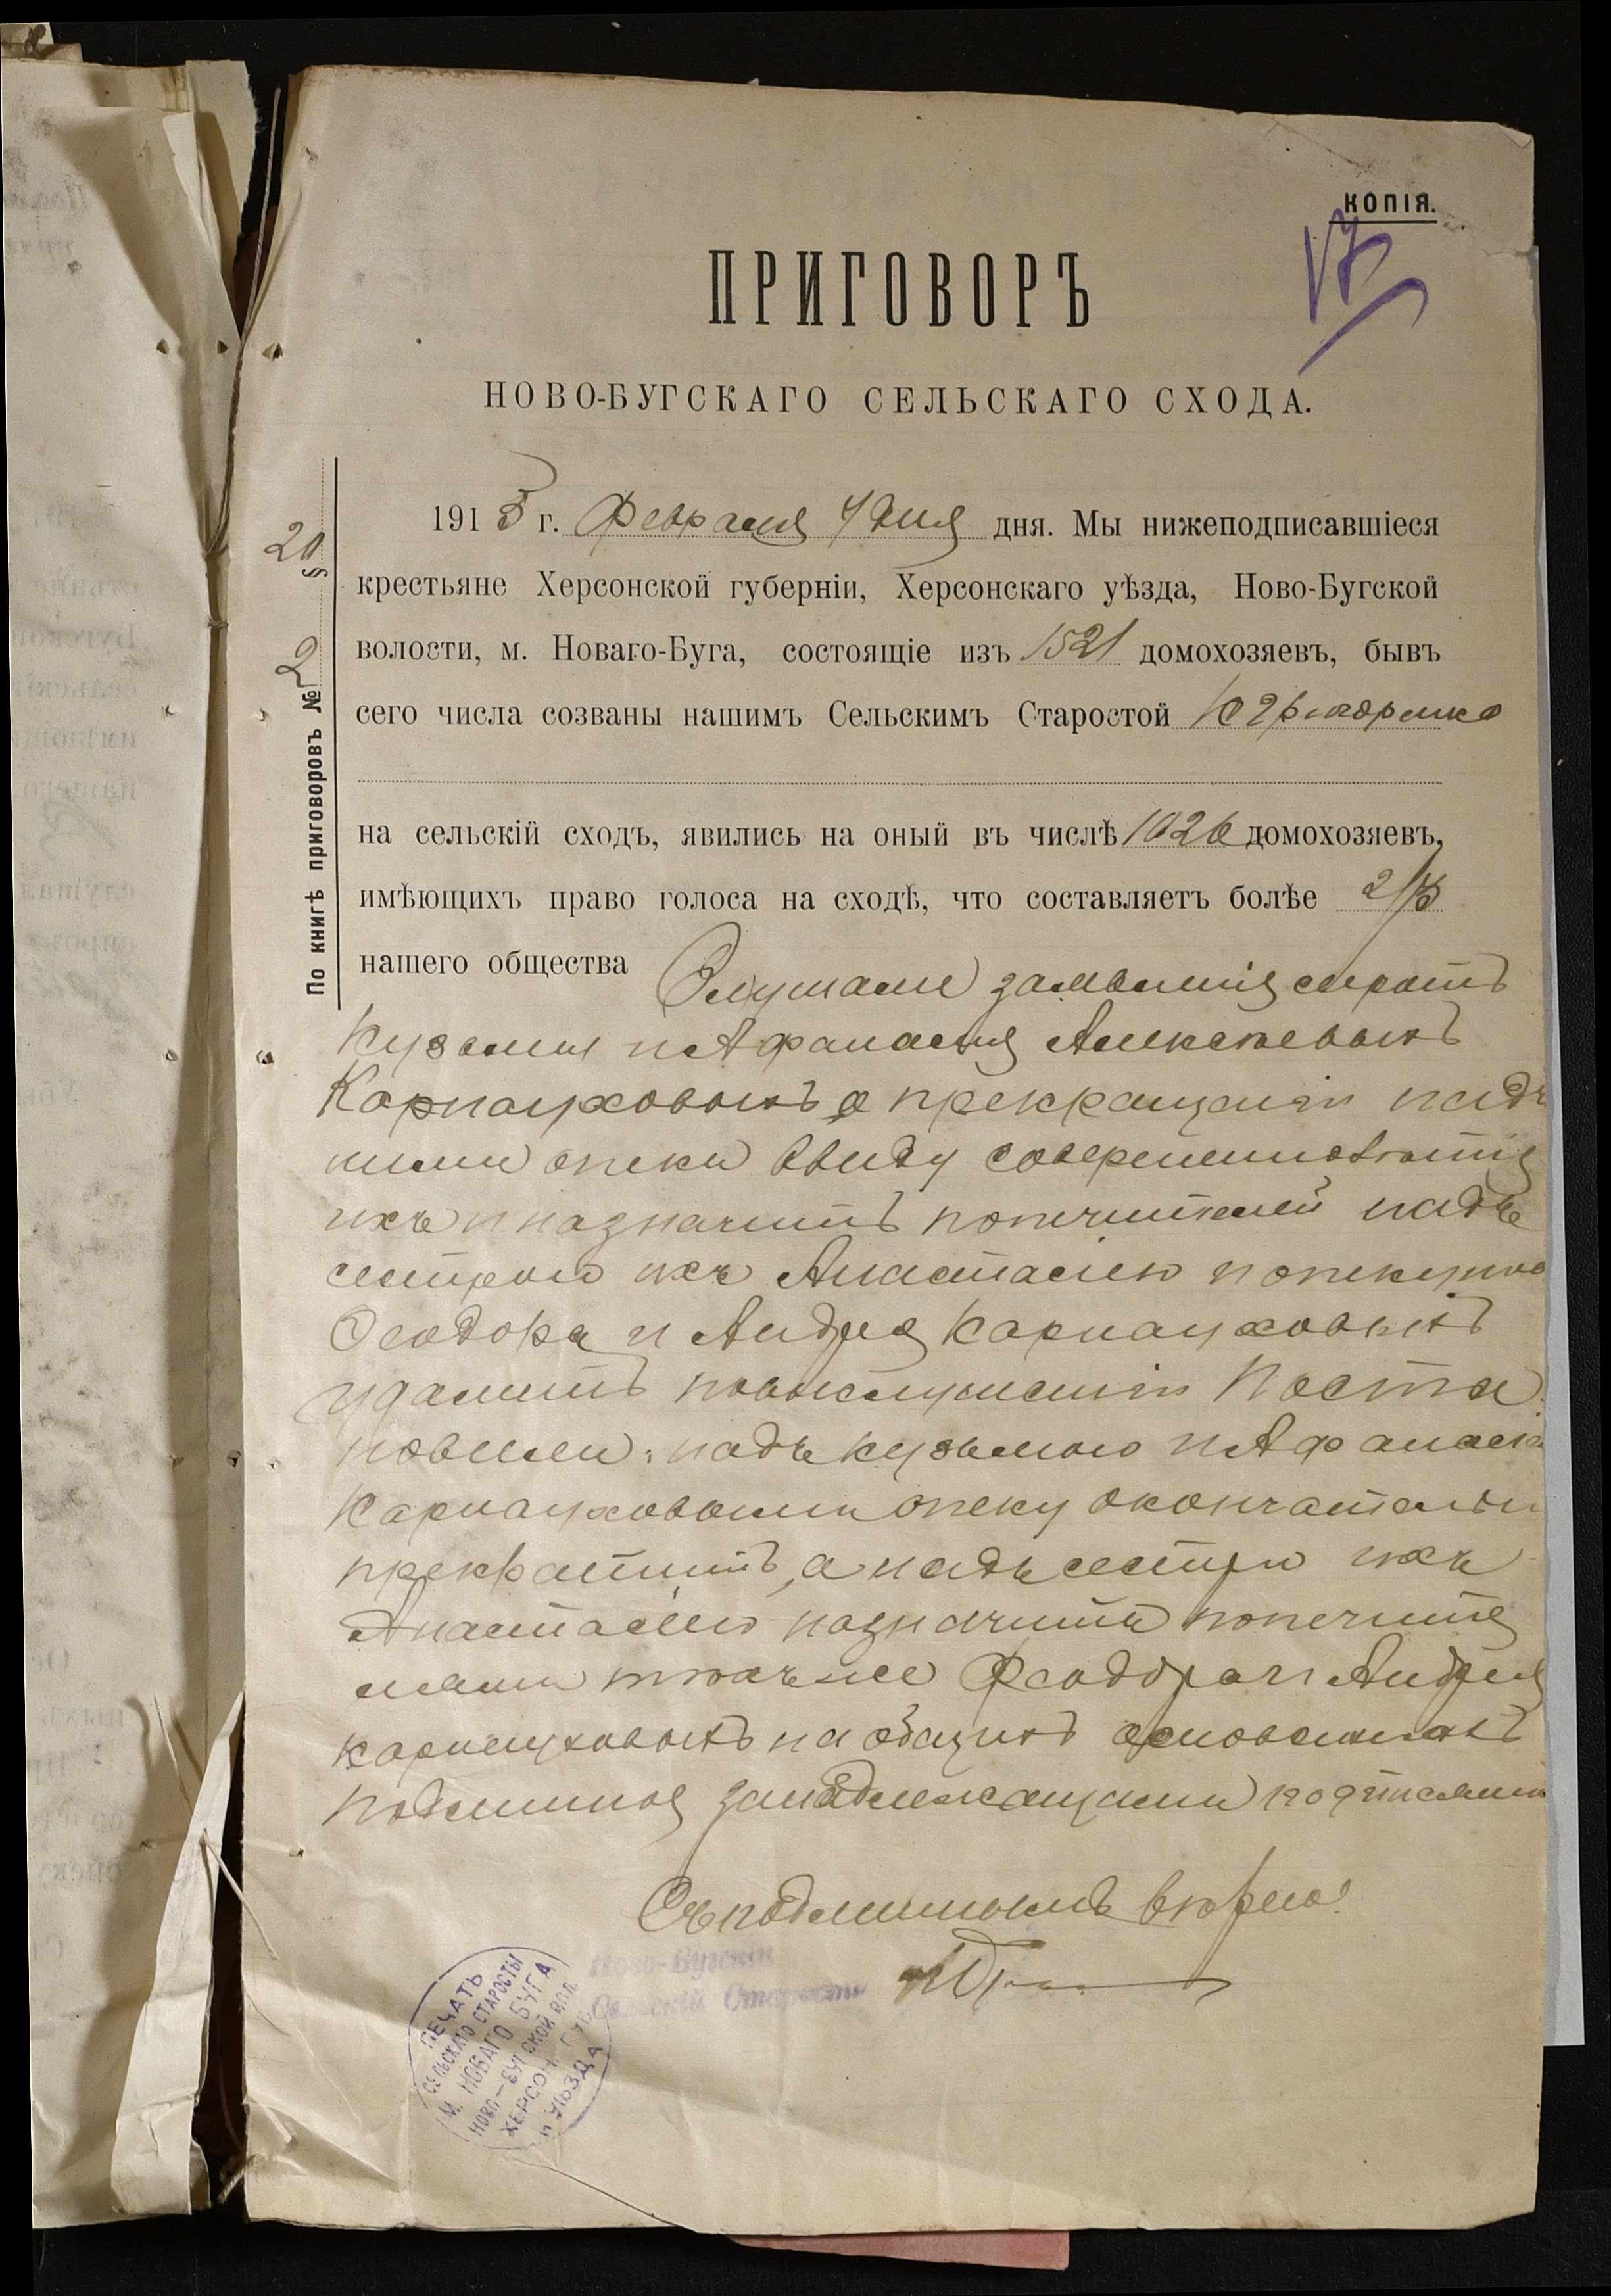 КОПІЯ.
17
ПРИГОВОРЪ
НОВО-БУГСКАГО СЕЛЬСКАГО СХОДА.
По книгѣ приговоровъ № 2
20 §
1915 г. Февраля дня дня. Мы нижеподписавшіеся
крестьяне Херсонской губерніи, Херсонскаго уѣзда, Ново-Бугской
волости, м. Новаго-Буга, состоящіе изъ 1521 домохозяевъ, бывъ
сего числа созваны нашимъ Сельскимъ Старостой
на сельскій сходъ, явились на оный въ числѣ 1026 домохозяевъ,
имѣющихъ право голоса на сходѣ, что составляетъ болѣе 2/3
нашего общества Слушали заявленія сиротъ
Кузьмы и Афанасия Алексѣевыхъ
Карнауховыхъ о прекращеніи надъ
ними опеки ввиду совершеннолѣтія
ихъ и назначить попечителей надъ
сестрою ихъ Анастасією и опекунов
Феодора и Андрея Карнауховыхъ
удалить по выслушаніи Поста
новили: надъ кузьмою и Афанасіе
Карнауховыми опеку окончательн
прекратить, а надъ сестрю ихъ
Анастасією назначить попечите
лями тѣхъ же Феодора и Андрея
карнауховыхъ на общихъ основаніяхъ
подлинной за надлежащими подписями
Съ подлиннымъ вѣрно:
Ново-Бугскій
Сельскій Староста
ПЕЧАТЬ
СЕЛЬСКАГО СТАРОСТЫ
М. НОВАГО БУГА
НОВО-БУГСКОЙ ВОЛ.
ХЕРСОН. ГУБ.
И УѢЗДА